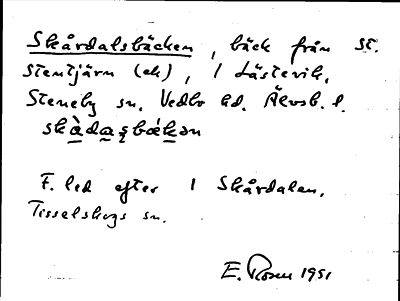 Skårdalsbäcken, bäck från St.
Stentjärn (ek), i Lästevik,
Steneby sn. Vedbo hd. Älvsb. l.
skàdasbækən
F. led efter i Skårdalen,
Tisselskogs sn.
E. Rosen 1951